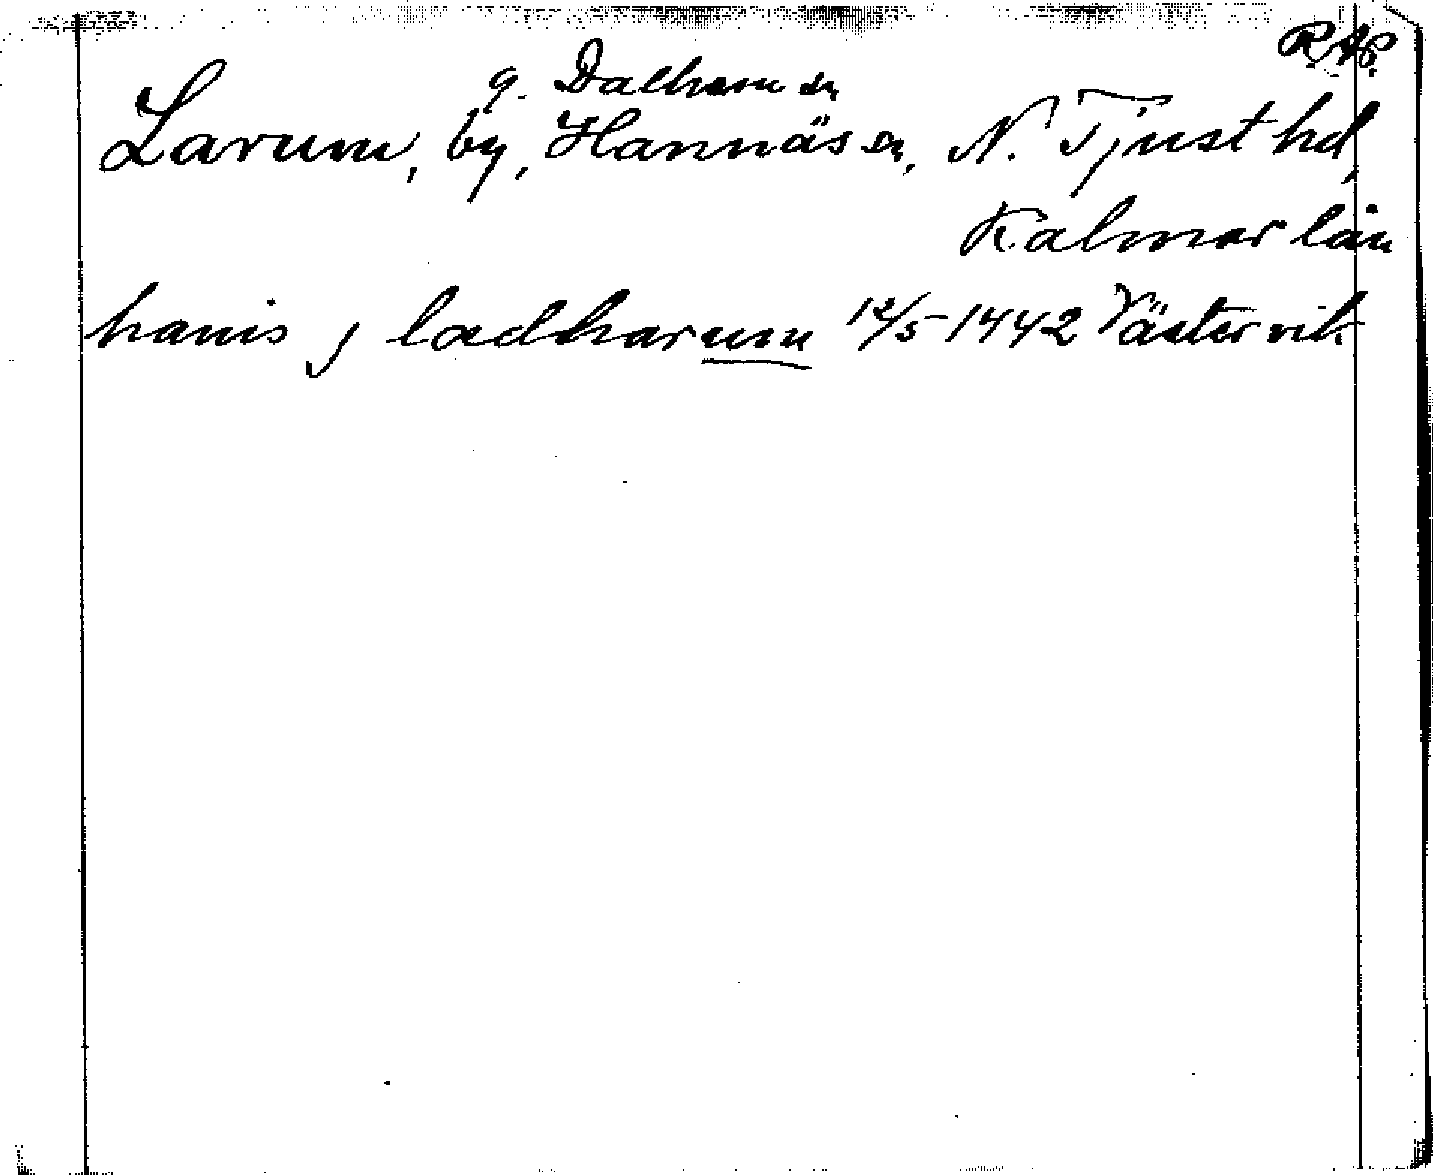 RAP.
g. Dalhem sn
Larum, by, Hannäs sn, N. Tjust hd,
Kalmar län
hanis j ladharum 12/5 1442 Västervik